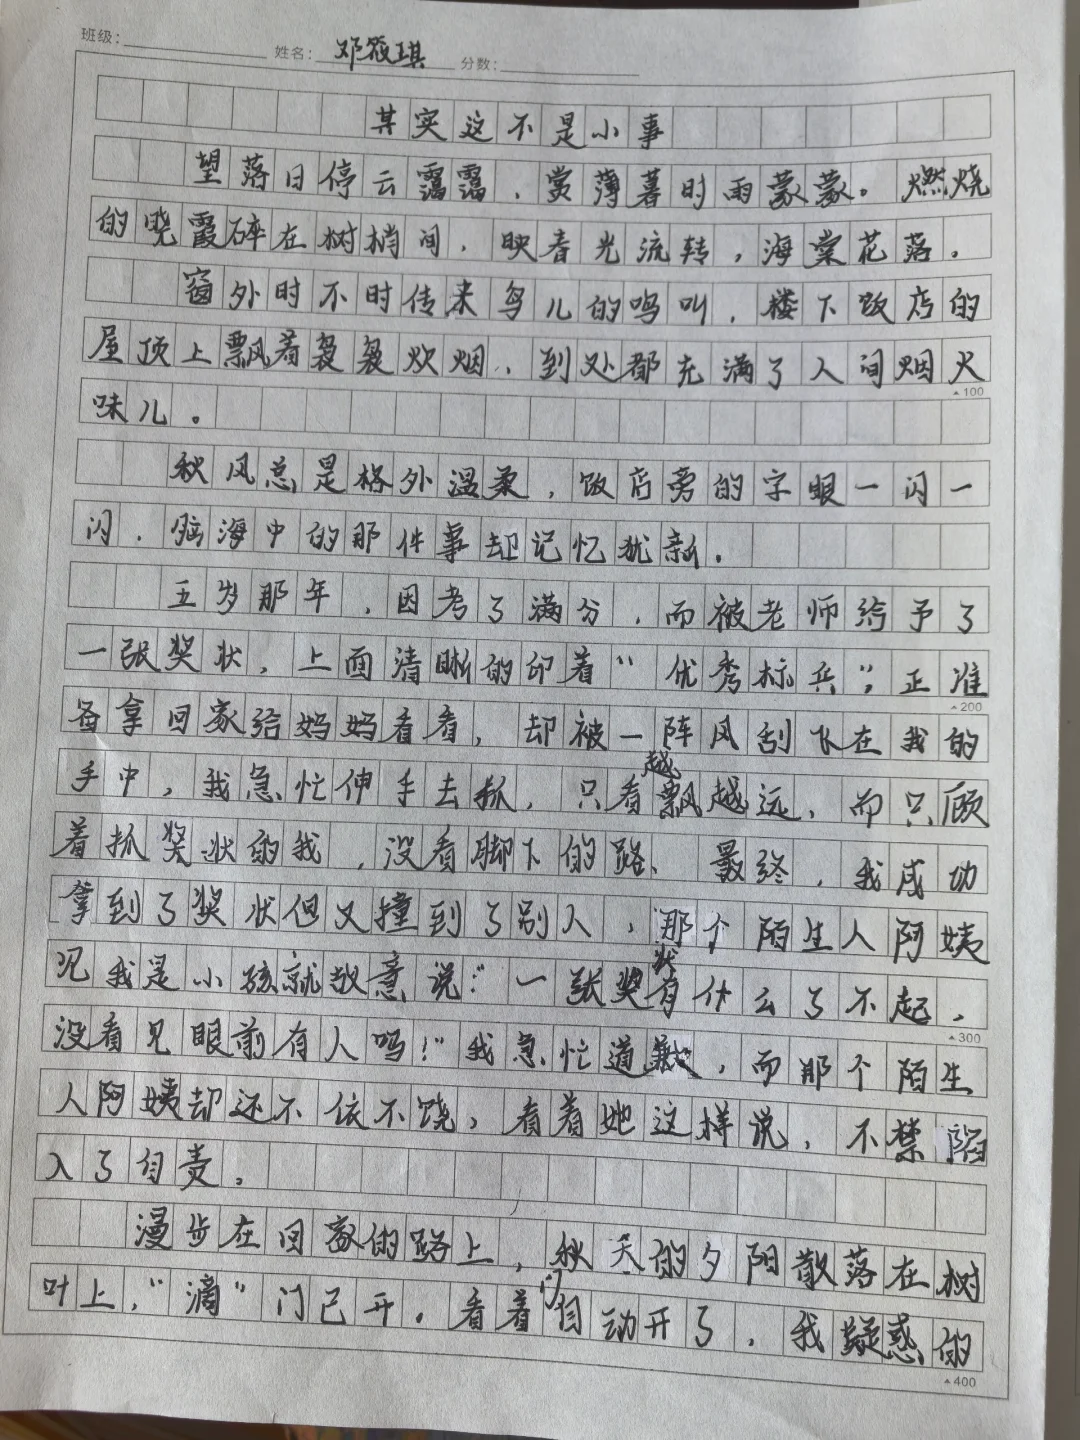 班级： 姓名：邓筱琪 分数：
其实这不是小事
望落日停云霭霭，赏薄暮时雨蒙蒙。燃烧
的晚霞碎在树梢间，映春光流转，海棠花落。
窗外时不时传来鸟儿的鸣叫，楼下饭店的
屋顶上飘着袅袅炊烟，到处都充满了人间烟火
▲100
味儿。
秋风总是格外温柔，饭店旁的字眼一闪一
闪，脑海中的那件事却记忆犹新。
五岁那年，因考了满分，而被老师给予了
一张奖状，上面清晰的印着“优秀标兵”，正准
▲200
备拿回家给妈妈看看，却被一阵风刮飞在我的
手中，我急忙伸手去抓，只看越飘越远，而只顾
着抓奖状的我，没看脚下的路、最终，我成功
拿到了奖状但又撞到了别人，那个陌生人阿姨
见我是小孩就故意说：“一张奖状有什么了不起，
▲300
没看见眼前有人吗！”我急忙道歉，而那个陌生
人阿姨却还不依不饶，看着她这样说，不禁陷
入了自责。
漫步在回家的路上，秋天的夕阳散落在树
叶上，“滴”门已开。看着门自动开了，我疑惑的
▲400